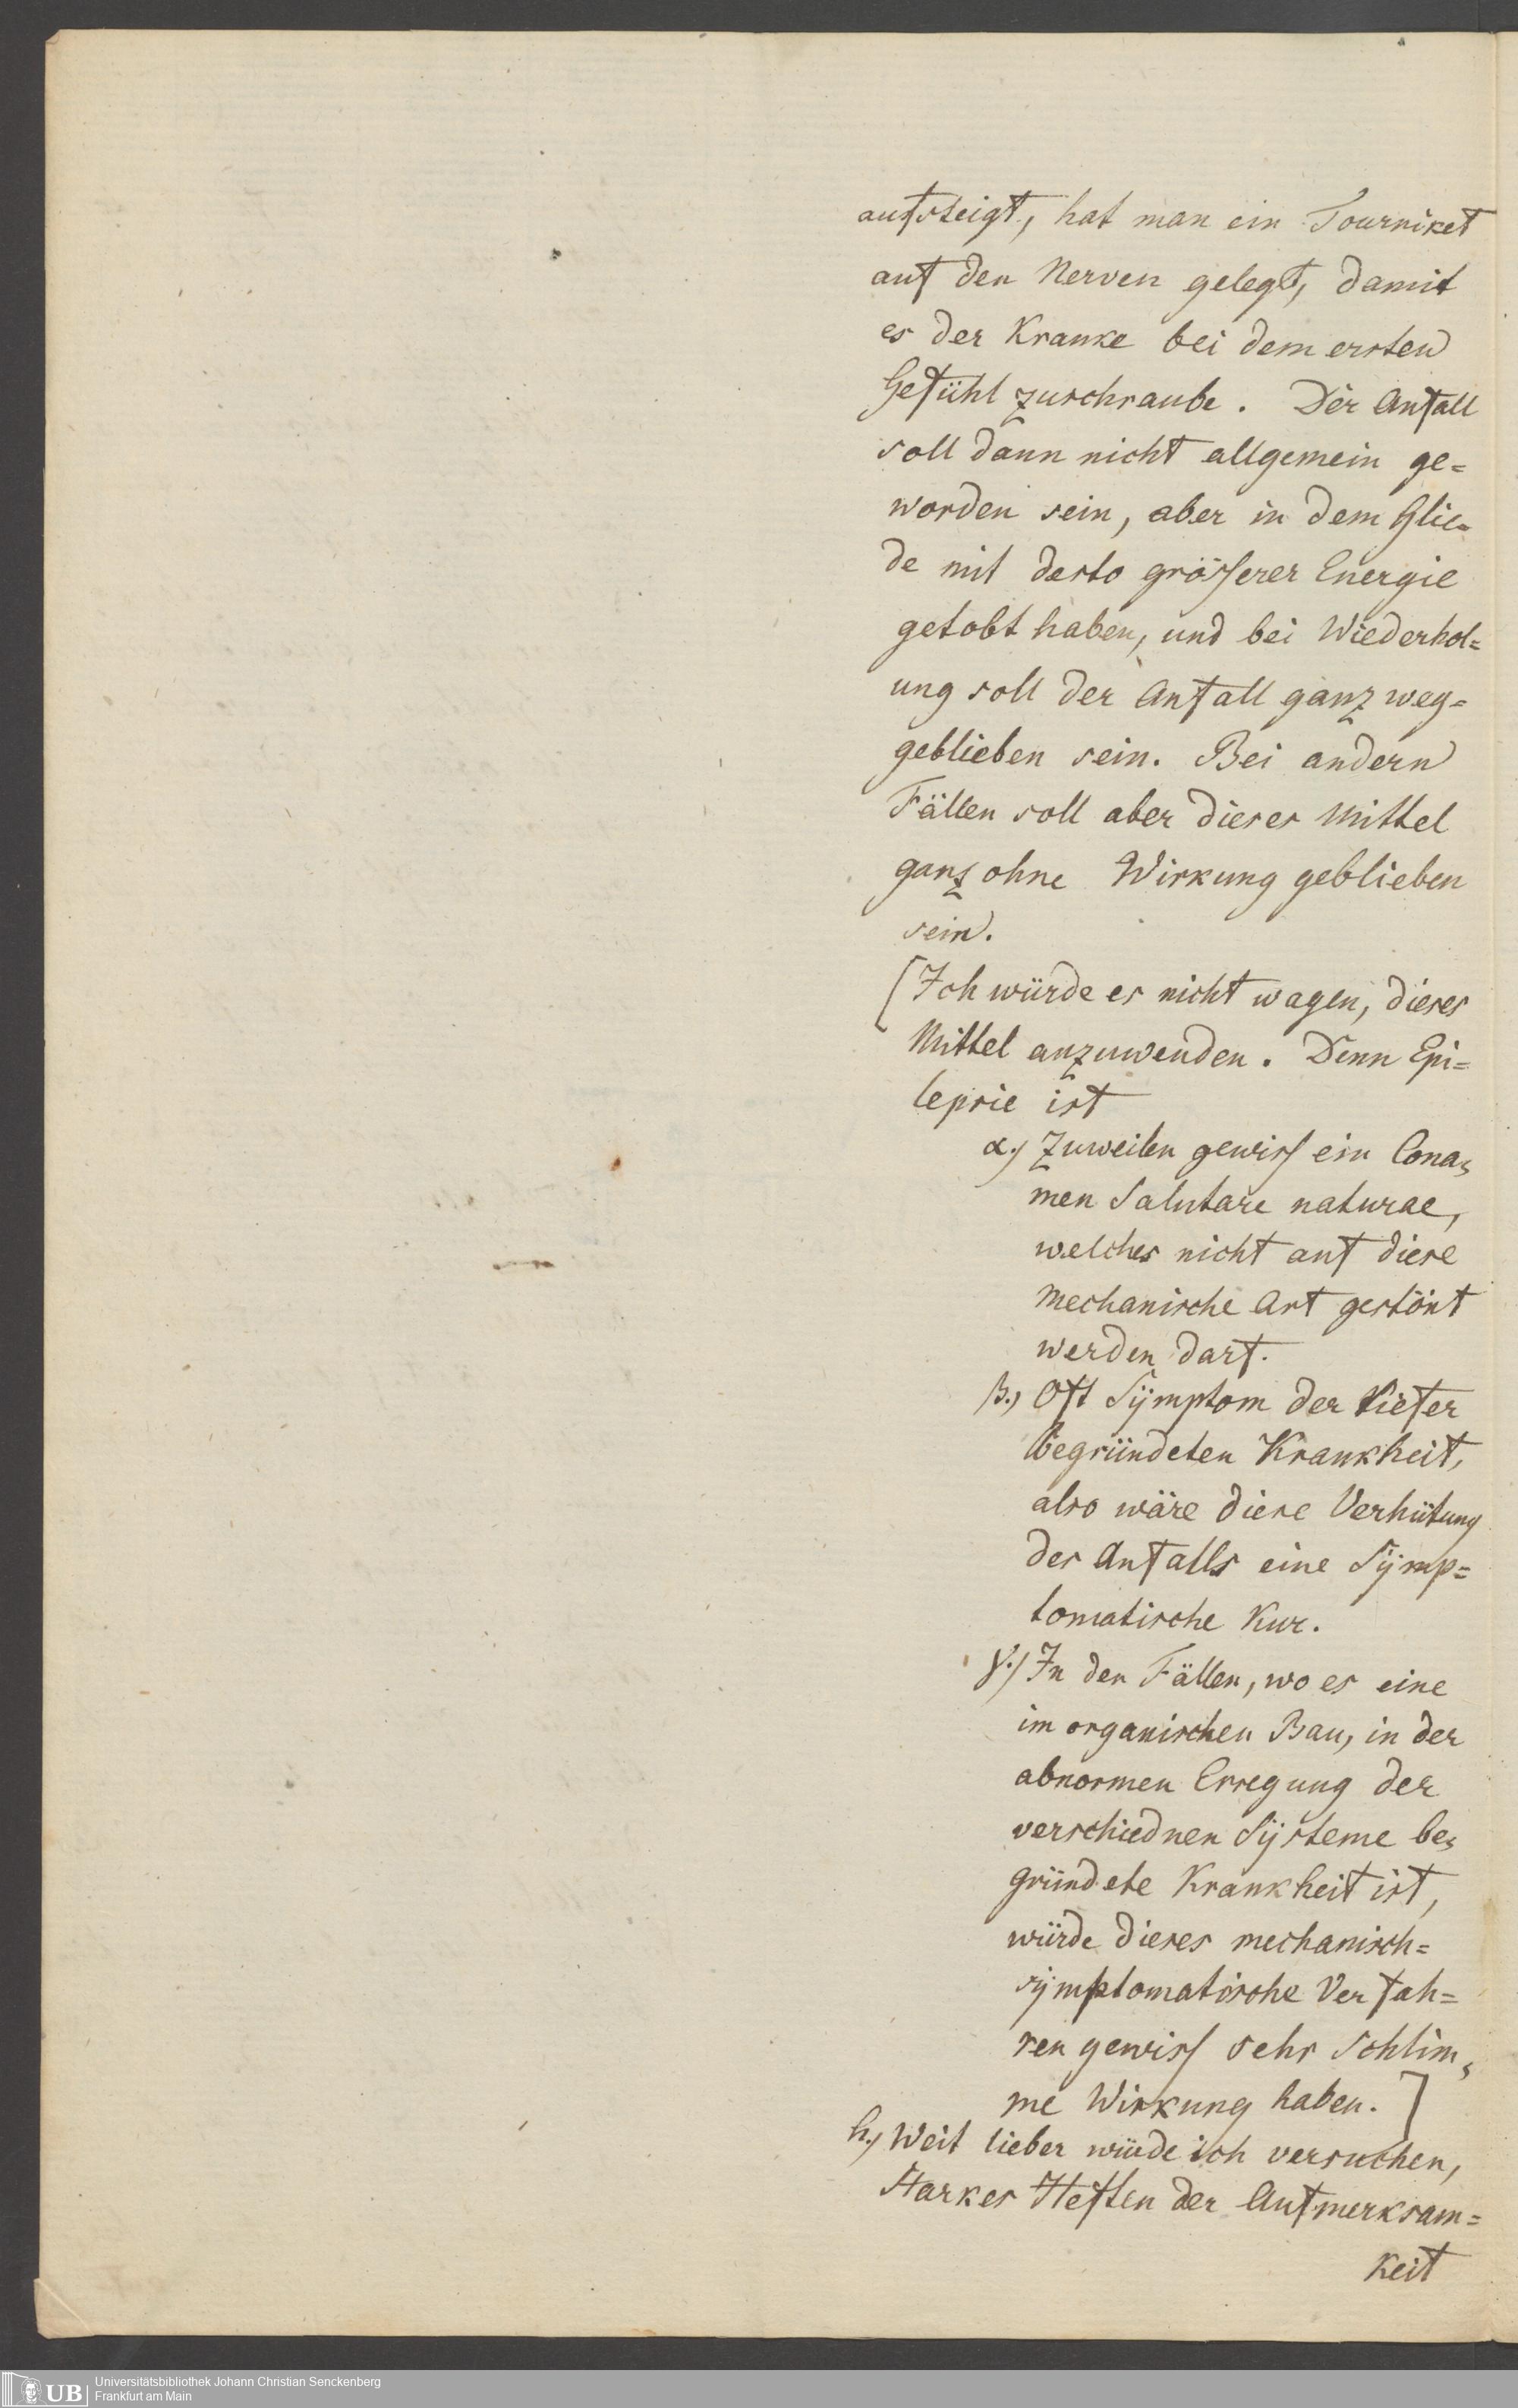 aufsteigt, hat man ein Tourniket
auf den Nerven gelegt, damit
es der Kranke bei dem ersten
Gefühl zuschraube. Der Anfall
soll dann nicht allgemein ge=
worden sein, aber in dem Glie=
de mit desto größerer Energie
getobt haben, und bei Wiederhol=
ung soll der Anfall ganz weg=
geblieben sein. Bei andern
Fällen soll aber dieses Mittel
ganz ohne Wirkung geblieben
sein.
[Ich würde es nicht wagen, dieses
Mittel anzuwenden. Denn Epi=
lepsie ist
α.) Zuweilen gewiß ein Cona=
men Salutare naturae,
welches nicht auf diese
mechanische Art gestört
werden darf.
β.) Oft Sÿmptom der tiefer
begründeten Krankheit,
also wäre diese Verhütung
des Anfalls eine Sÿmp=
tomatische Kur.
γ.) In den Fällen, wo es eine
im organischen Bau, in der
abnormen Erregung der
verschiednen Sÿsteme be=
gründete Krankheit ist,
würde dieses mechanisch=
sÿmptomatische Verfah=
ren gewiß sehr Schlim=
me Wirkung haben.]
h.) Weit lieber würde ich versuchen,
Starkes Heften der Aufmerksam=
keit
UB
Universitätsbibliothek Johann Christian Senckenberg
Frankfurt am Main